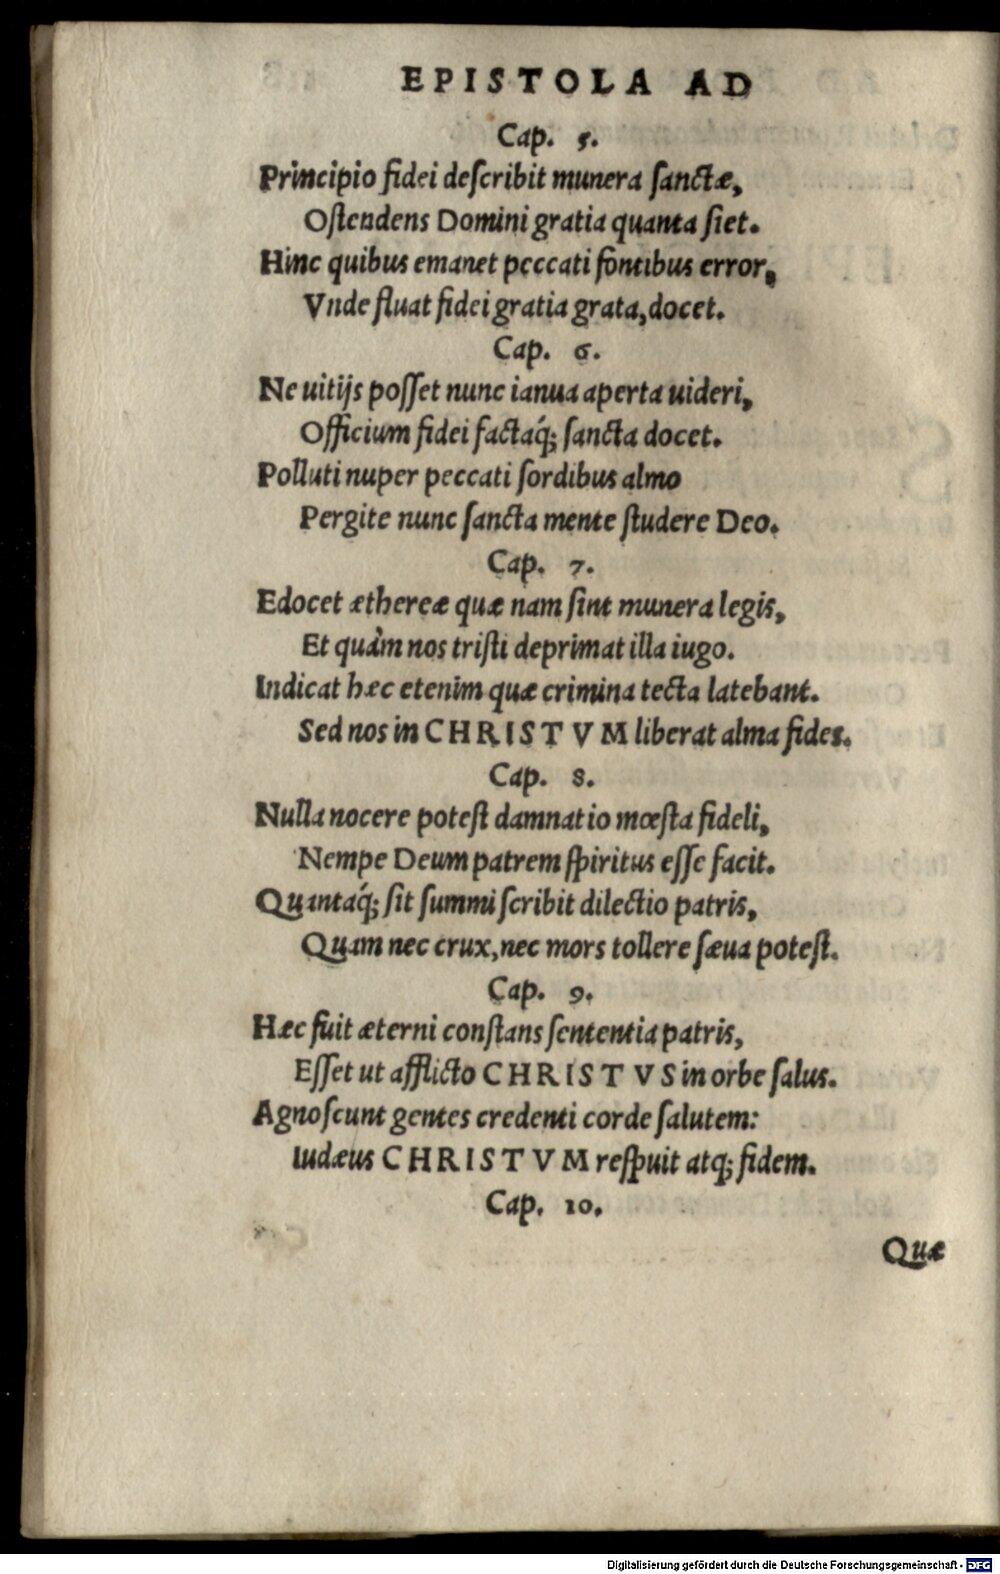 EPISTOLA AD
Cap. 5.
Principio fidei deſcribit munera ſanctæ,
Oſtendens Domini gratia quanta ſiet.
Hinc quibus emanet peccati fontibus error,
Vnde fluat fidei gratia grata, docet.
Cap. 6.
Ne uitijs poſſet nunc ianua aperta uideri,
Officium fidei factaq́; ſancta docet.
Polluti nuper peccati ſordibus almo
Pergite nunc ſancta mente ſtudere Deo.
Cap. 7.
Edocet æthereæ quæ nam ſint munera legis,
Et quàm nos triſti deprimat illa iugo.
Indicat hæc etenim quæ crimina tecta latebant.
Sed nos in CHRISTVM liberat alma fides.
Cap. 8.
Nulla nocere poteſt damnatio mœſta fideli,
Nempe Deum patrem ſpiritus eſſe facit.
Quantaq́; ſit ſummi ſcribit dilectio patris,
Quam nec crux, nec mors tollere ſæua poteſt.
Cap. 9.
Hæc fuit æterni conſtans ſententia patris,
Eſſet ut afflicto CHRISTVS in orbe ſalus.
Agnoſcunt gentes credenti corde ſalutem:
Iudæus CHRISTVM reſpuit atq; fidem.
Cap. 10.
Quæ
Digitalisierung gefördert durch die Deutsche Forschungsgemeinschaft - DFG